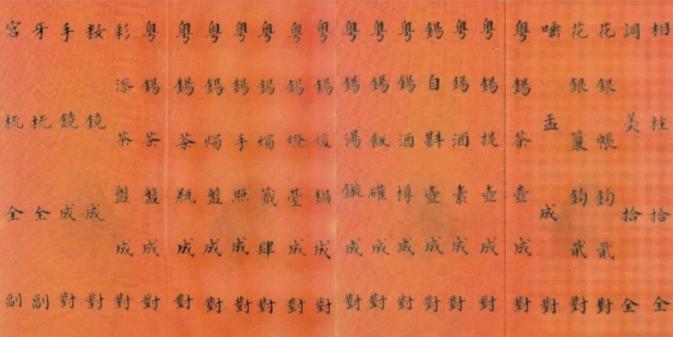 相挂拾全
調羹拾全
花銀帳鈎貳對
花銀簾鈎貳對
唾盂成對
粵錫茶壺成對
粵錫提壺成對
粵錫酒素成對
錫自斟壺成對
粵錫酒樽成對
粵錫飯礶成對
粵錫湯鏇成對
粵錫煖鍋成對
粵錫燈臺成對
粵錫燭籤肆對
粵錫手照成對
粵錫燭盤成對
粵錫茶瓶成對
粵錫茶盤成對
彩漆茶盤成對
鏡成對
手鏡成對
牙梳全副
宮梳全副